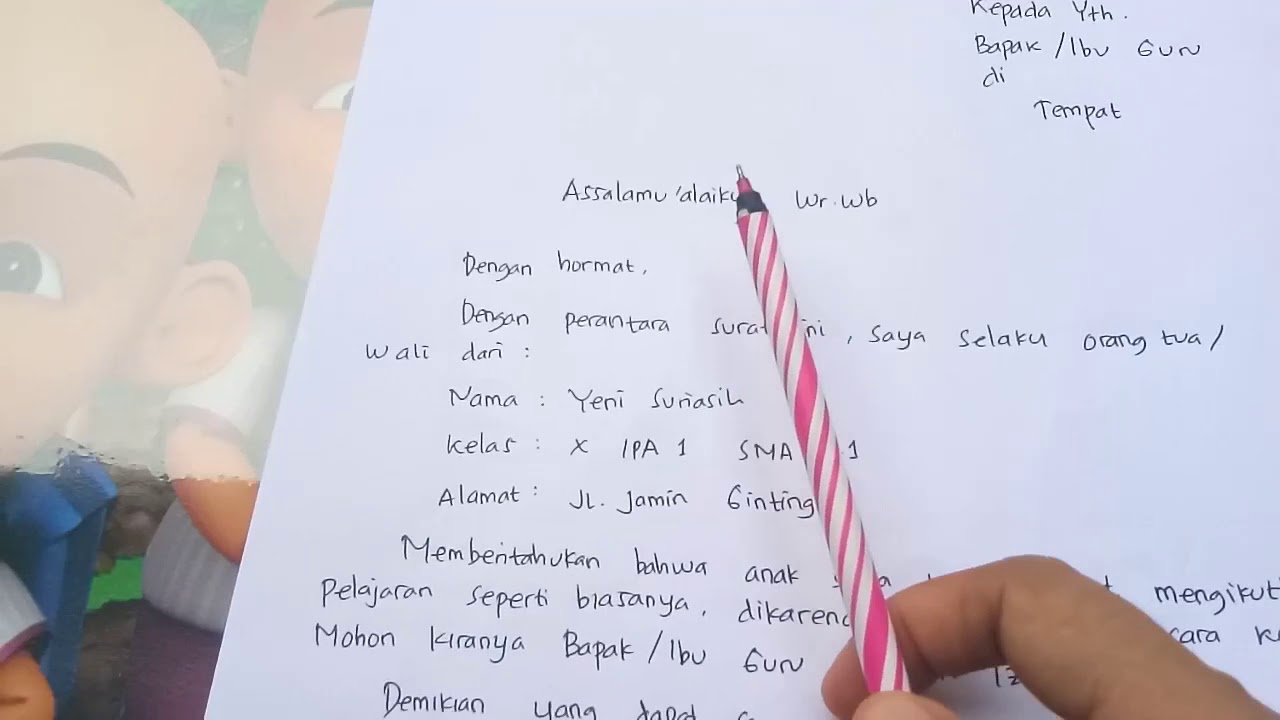 Kepada Yth.
Bapak /Ibu Guru
di
Tempat
Assalamu'alaiku Wr.Wb
Dengan hormat,
Dengan perantara surat ini, saya selaku orang tua/
wali dari :
Nama : Yeni Suriasih
Kelas : X IPA 1 SMA 1
Alamat : JL. Jamin Ginting
Memberitahukan bahwa anak mengikuti
Pelajaran seperti biasanya, dikaren
Mohon kiranya Bapak /Ibu Guru
Demikian yang dapat